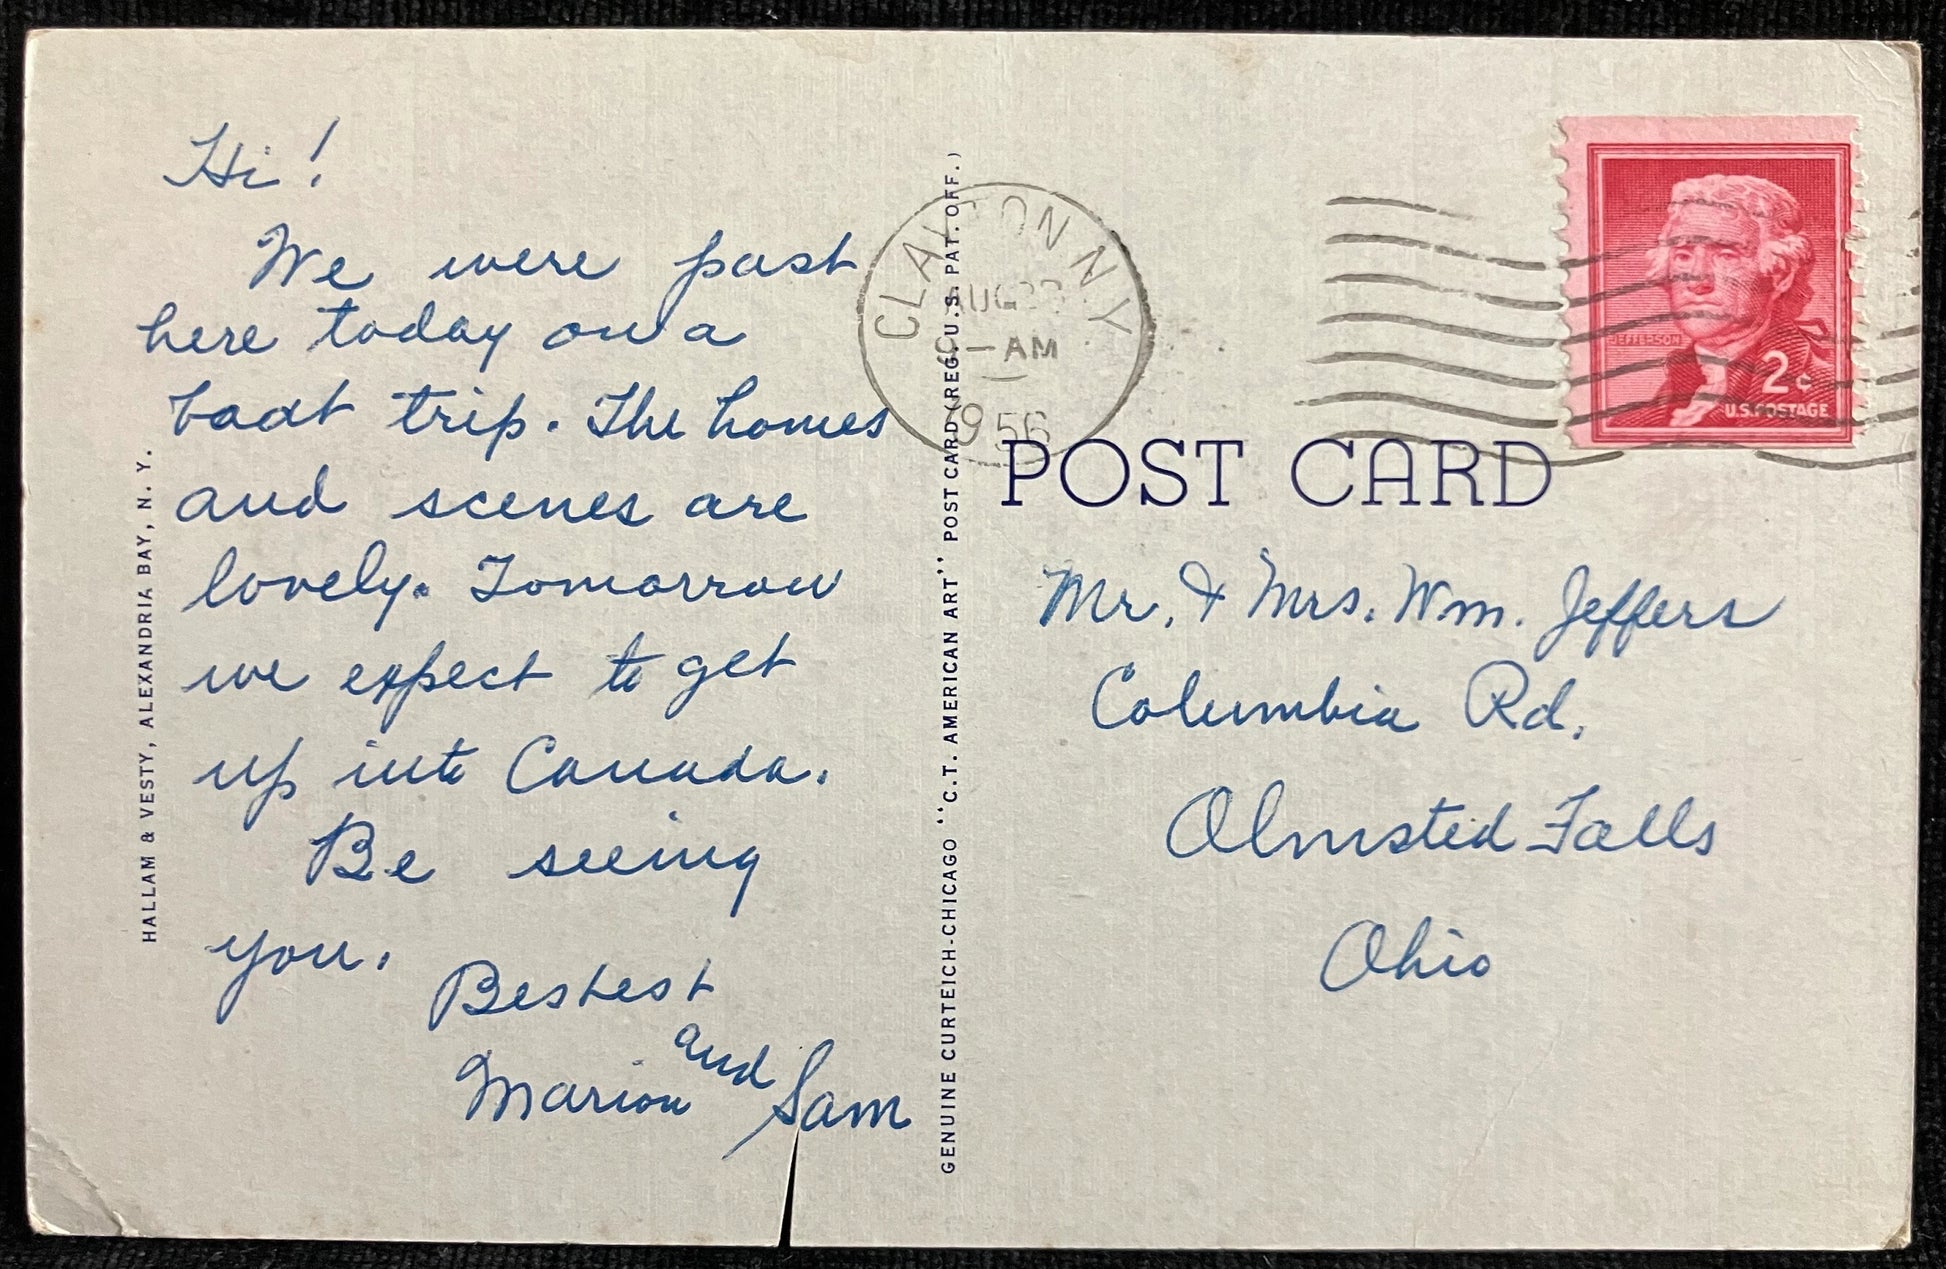 Hi!
We were past
here today on a
boat trip. The homes
and scenes are
lovely. Tomorrow
we expect to get
up into Canada.
Be seeing
you.
Bestest
Marion and Sam
HALLAM & VESTY, ALEXANDRIA BAY, N. Y.
GENUINE CURTEICH-CHICAGO "C.T. AMERICAN ART" POST CARD (REG. U.S. PAT. OFF.)
CLAYTON N.Y.
AUG
– AM
1956
JEFFERSON
2¢
U.S. POSTAGE
POST CARD
Mr. & Mrs. Wm. Jeffers
Columbia Rd.
Olmsted Falls
Ohio